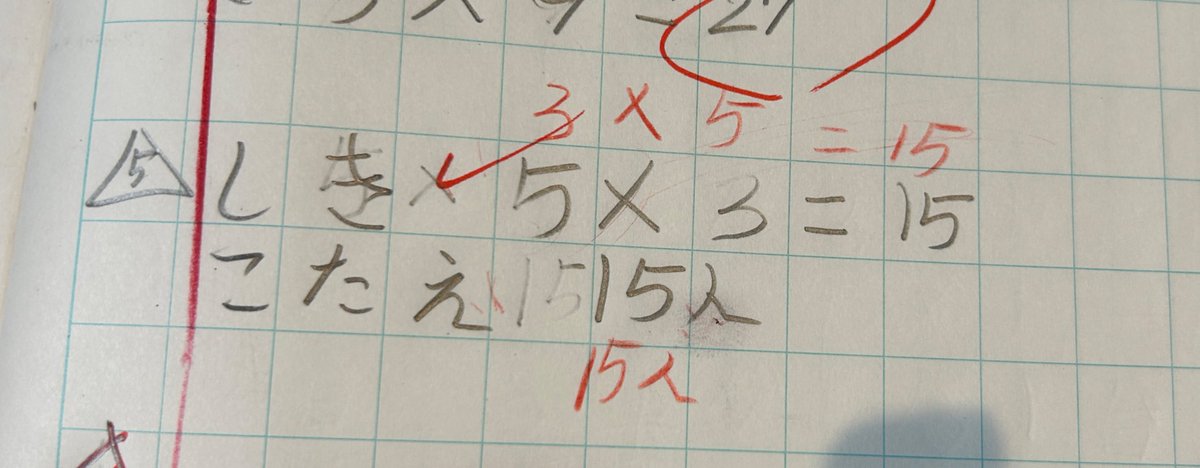 3 × 9 = 27
3 × 5 = 15
5 しき 5 × 3 = 15
こたえ 15 15人
15人